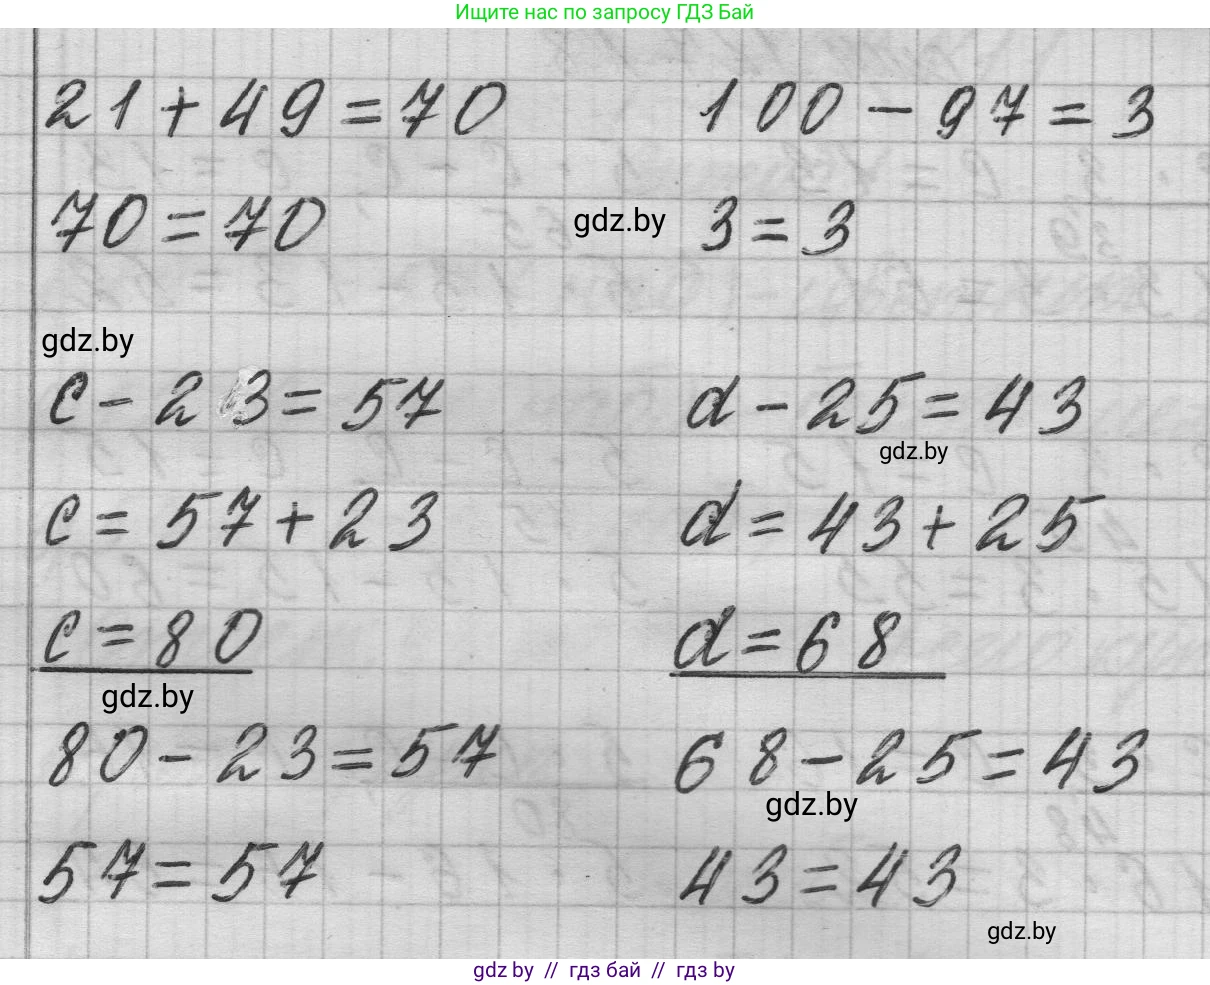 Ищите нас по запросу ГДЗ Бай
21 + 49 = 70
100 - 97 = 3
70 = 70
gdz.by
3 = 3
gdz.by
c - 23 = 57
d - 25 = 43
gdz.by
c = 57 + 23
d = 43 + 25
c = 80
d = 68
gdz.by
80 - 23 = 57
68 - 25 = 43
gdz.by
57 = 57
43 = 43
gdz.by
gdz by // гдз бай // gdz by